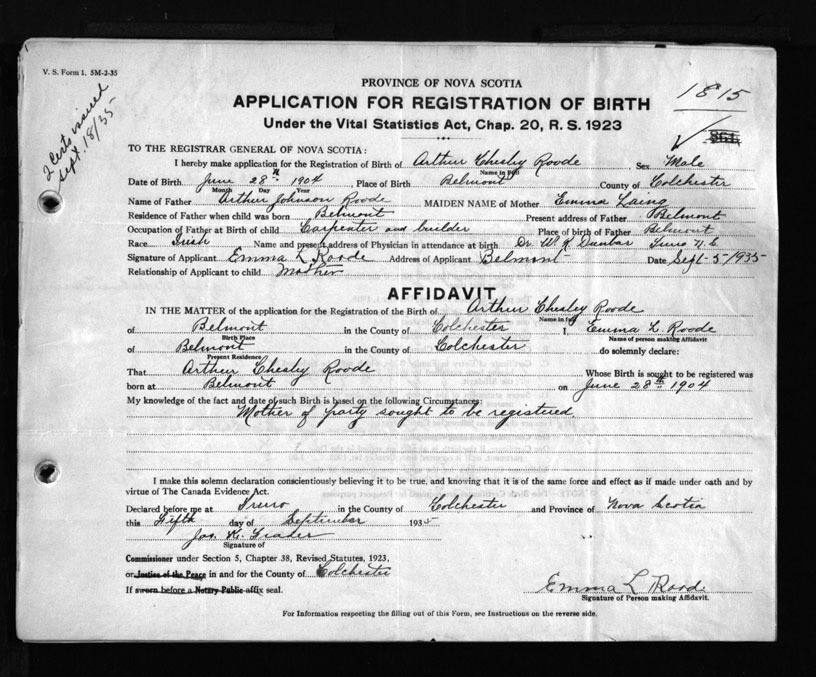 V. S. Form 1. 5M-2-35
2 Certs issued
Sept. 18/35
PROVINCE OF NOVA SCOTIA
1815
APPLICATION FOR REGISTRATION OF BIRTH
Under the Vital Statistics Act, Chap. 20, R. S. 1923
861
TO THE REGISTRAR GENERAL OF NOVA SCOTIA:
I hereby make application for the Registration of Birth of Arthur Chesley Roode Sex Male
Name in Full
Date of Birth June 28th 1904, Place of Birth Belmont County of Colchester
Month Day Year
Name of Father Arthur Johnson Roode MAIDEN NAME of Mother Emma Laing
Residence of Father when child was born Belmont Present address of Father Belmont
Occupation of Father at Birth of child Carpenter and builder Place of birth of Father Belmont
Race Irish Name and present address of Physician in attendance at birth Dr. W. R. Dunbar Truro N.S.
Signature of Applicant Emma L Roode Address of Applicant Belmont Date Sept-5/1935
Relationship of Applicant to child Mother
AFFIDAVIT
IN THE MATTER of the application for the Registration of Birth of Arthur Chesley Roode
Name in full
of Belmont in the County of Colchester I, Emma L. Roode
Birth Place Name of person making Affidavit
of Belmont in the County of Colchester do solemnly declare:
Present Residence
That Arthur Chesley Roode Whose Birth is sought to be registered was
born at Belmont on June 28th 1904
My knowledge of the fact and date of such Birth is based on the following Circumstances:
Mother of party sought to be registered
I make this solemn declaration conscientiously believing it to be true, and knowing that it is of the same force and effect as if made under oath and by
virtue of The Canada Evidence Act.
Declared before me at Truro in the County of Colchester and Province of Nova Scotia
this Fifth day of September 1935
Jos. H.
Signature of
Commissioner under Section 5, Chapter 38, Revised Statutes, 1923,
or Justice of the Peace in and for the County of Colchester
If sworn before a Notary Public affix seal.
Emma L Roode
Signature of Person making Affidavit.
For Information respecting the filling out of this Form, see Instructions on the reverse side.